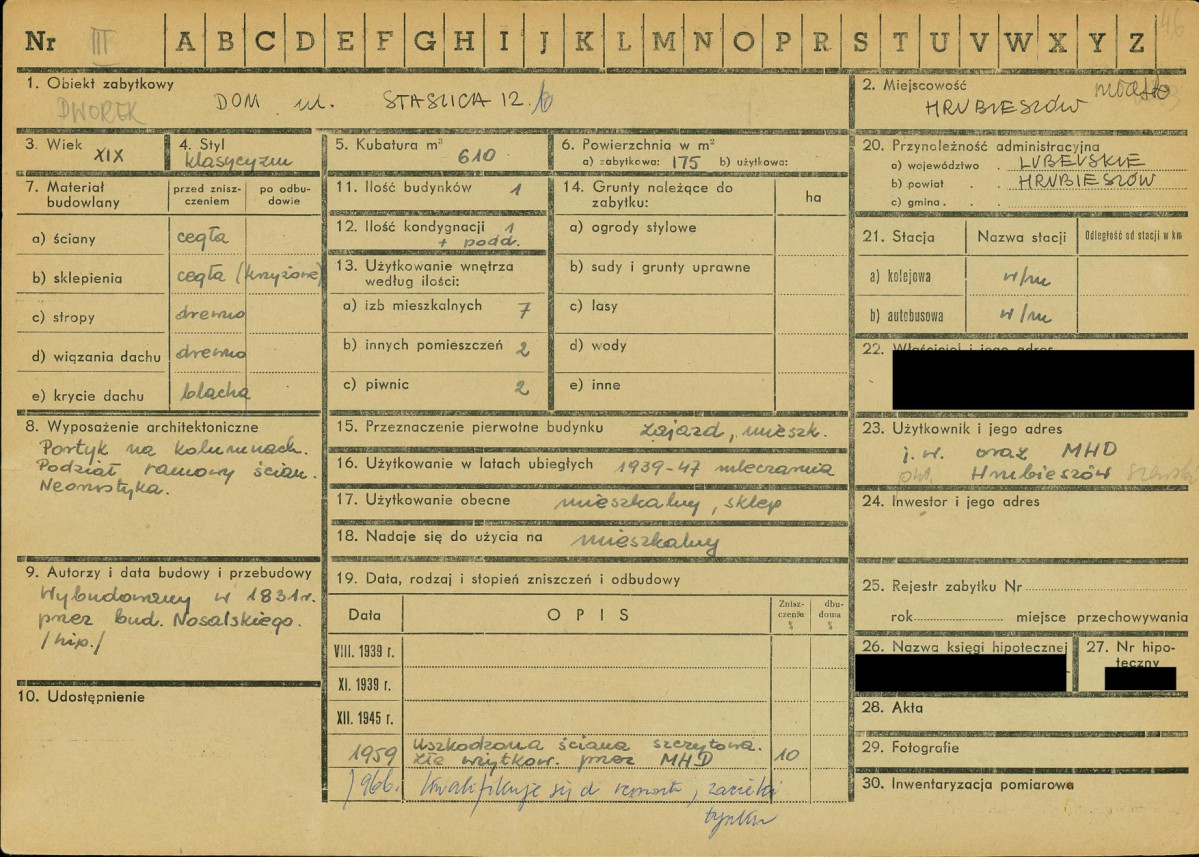 Nr III A B C D E F G H I J K L M N O P R S T U V W X Y Z 46
1. Obiekt zabytkowy
DWOREK DOM ul. STASZICA 12.
2. Miejscowość miasto
HRUBIESZÓW
3. Wiek XIX
4. Styl
klasycyzm
5. Kubatura m³ 610
6. Powierzchnia w m²
a) zabytkowa: 175 b) użytkowa:
20. Przynależność administracyjna
a) województwo LUBELSKIE
b) powiat HRUBIESZÓW
c) gmina
7. Materiał budowlany
przed zniszczeniem
po odbudowie
a) ściany cegła
b) sklepienia cegła (krzyżowe)
c) stropy drewno
d) wiązania dachu drewno
e) krycie dachu blacha
11. Ilość budynków 1
12. Ilość kondygnacji 1
+ podd.
13. Użytkowanie wnętrza
według ilości:
a) izb mieszkalnych 7
b) innych pomieszczeń 2
c) piwnic 2
14. Grunty należące do
zabytku:
ha
a) ogrody stylowe
b) sady i grunty uprawne
c) lasy
d) wody
e) inne
21. Stacja Nazwa stacji Odległość od stacji w km
a) kolejowa w/m
b) autobusowa w/m
22. Właściciel i jego adres
8. Wyposażenie architektoniczne
Portyk na kolumnach.
Podział ramowy ścian.
15. Przeznaczenie pierwotne budynku zajazd, mieszk.
16. Użytkowanie w latach ubiegłych 1939-47 mleczarnia
17. Użytkowanie obecne mieszkalny, sklep
18. Nadaje się do użycia na mieszkalny
23. Użytkownik i jego adres
j.w. oraz MHD
Hrubieszów
24. Inwestor i jego adres
9. Autorzy i data budowy i przebudowy
Wybudowany w 1831r.
przez bud. Nosalskiego.
/hip./
10. Udostępnienie
19. Data, rodzaj i stopień zniszczeń i odbudowy
Data OPIS Zniszczenie % dbudowa %
VIII. 1939 r.
XI. 1939 r.
XII. 1945 r.
1959 Uszkodzona ściana szczytowa. 10
Źle użytkow. przez MHD
1966. Kwalifikuje się d remontu, zacieki
tynku
25. Rejestr zabytku Nr
rok miejsce przechowywania
26. Nazwa księgi hipotecznej
27. Nr hipoteczny
28. Akta
29. Fotografie
30. Inwentaryzacja pomiarowa